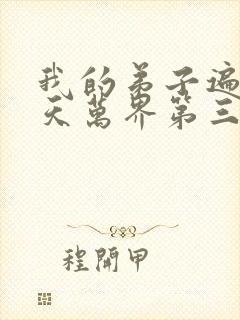 我的弟子遍
天萬界第三
程開甲